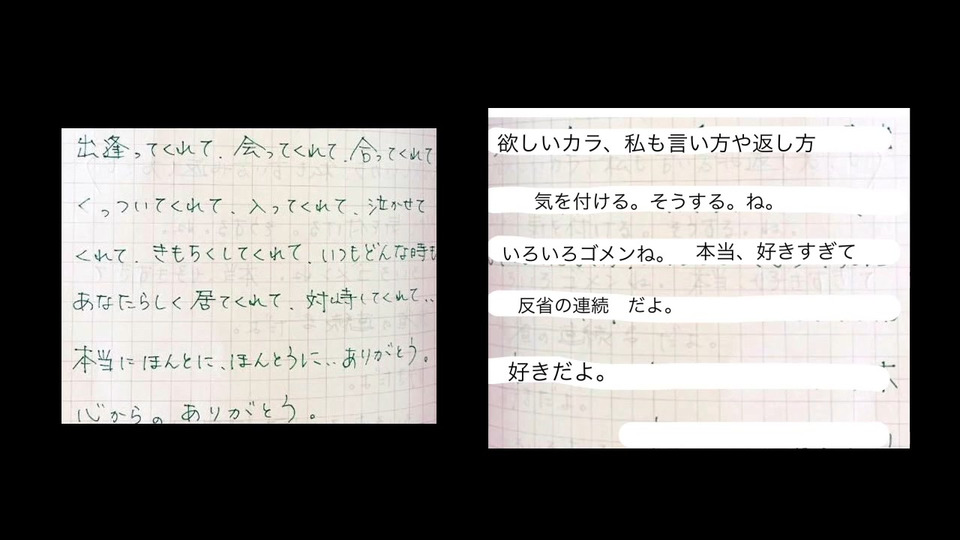 出逢ってくれて、会ってくれて、合ってくれて
くっついてくれて、入ってくれて、泣かせて
くれて、きもちくしてくれて、いつもどんな時も
あなたらしく居てくれて、対峙してくれて‥
本当にほんとに、ほんとうに‥ありがとう。
心からの ありがとう。
欲しいカラ、私も言い方や返し方
気を付ける。そうする。ね。
いろいろゴメンね。 本当、好きすぎて
反省の連続 だよ。
好きだよ。